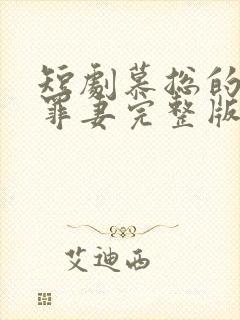 短劇慕總的
罪妻完整版
艾迪西